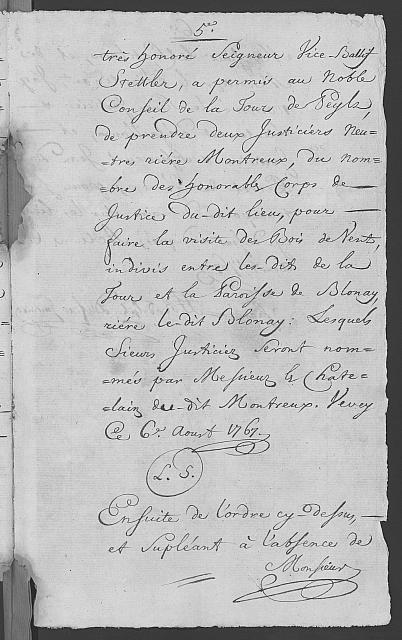 5.e
très honoré Seigneur Vice-Ballif
Stettler, a permis au Noble
Conseil de la Tour de Peylz,
de prendre deux Justiciers Neu=
=tres riére Montreux, du nom=
=bre des honorables Corps de
Justice du-dit lieu, pour
faire la visite des Bois de Vent,
indivis entre les-dits de la
Tour et la Paroisse de Blonay,
riére le-dit Blonay: Lesquels
Sieurs Justiciez seront nom=
=més par Messieur le Chate=
=lain du-dit Montreux. Vevey
Ce 6.e Aoust 1767.
L. S.
Ensuite de l'ordre cy dessus,
et supléant à l'absence de
Monsieur